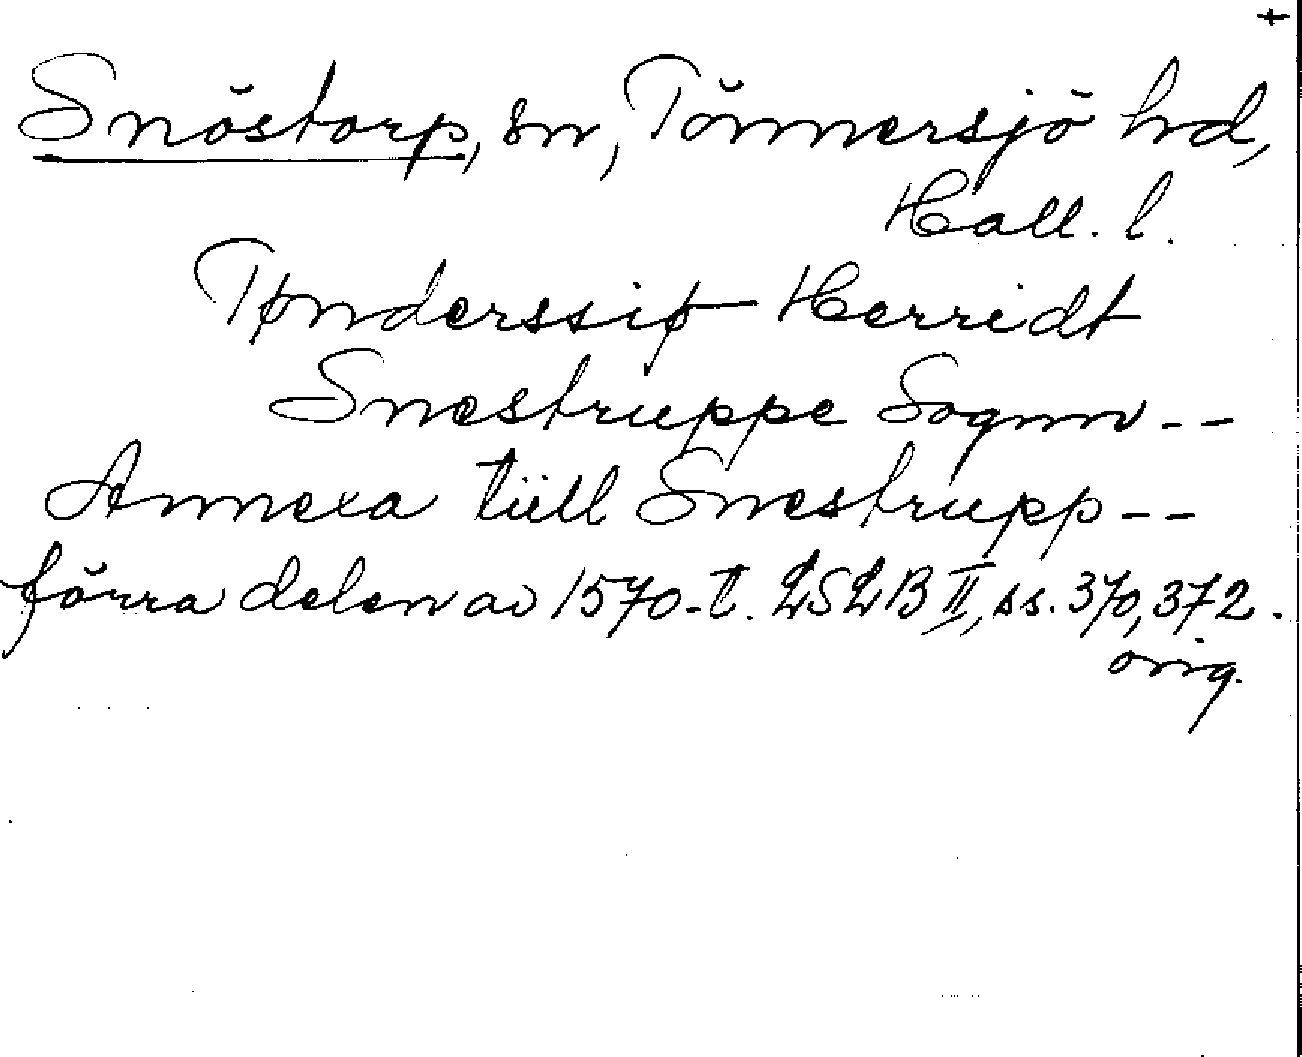 Snöstorp, sn, Tönnersjö hd,
Hall. l.
Tønderssiø Herridt
Snestruppe Sognn--
Annexa tiill Snestrupp--
förra delen av 1570-t. LSLB II, ss. 370, 372.
orig.